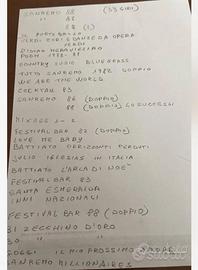 SANREMO 88 (33 GIRI)
" 87
" 89 (1)
IL PORTOBALLO
VERDI CORI E DANZE DA OPERA
VERDI
DISCHI
POOH 1978-81
COUNTRY AND BLUEGRASS
TUTTO SANREMO 1982 DOPPIO
WE ARE THE WORLD
COCKTAIL 83
SANREMO 86 (DOPPIO)
" 88 (DOPPIO) 20 SUCCESSI
MIXAGE 1-2
FESTIVALBAR 87 (DOPPIO)
LOVE ME BABY
BATTIATO ORIZZONTI PERDUTI
JULIO IGLESIAS IN ITALIA
BATTIATO L'ARCA DI NOE'
FESTIVALBAR 83
SANTA ESMERALDA
INNI NAZIONALI
FESTIVAL BAR 88 (DOPPIO)
31 ZECCHINO D'ORO
30 " "
GOGGI IL MIO PROSSIMO AMORE
SANREMO MILLIONAIRES
SUBITO